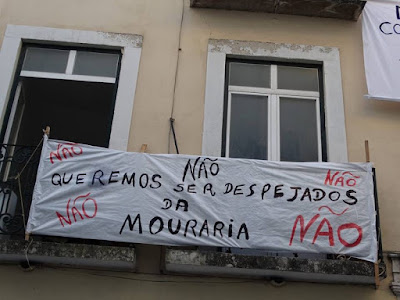 NÃO NÃO NÃO
QUEREMOS SER DESPEJADOS
DA
NÃO MOURARIA NÃO
CO